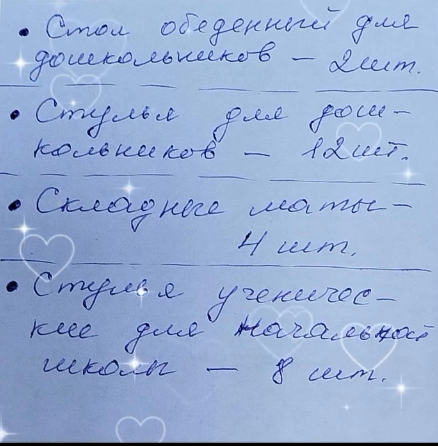 • Стол обеденный для
дошкольников – 2 шт.
• Стулья для дош-
кольников – 12 шт.
• Складные маты –
4 шт.
• Стулья ученичес-
кие для начальной
школы – 8 шт.